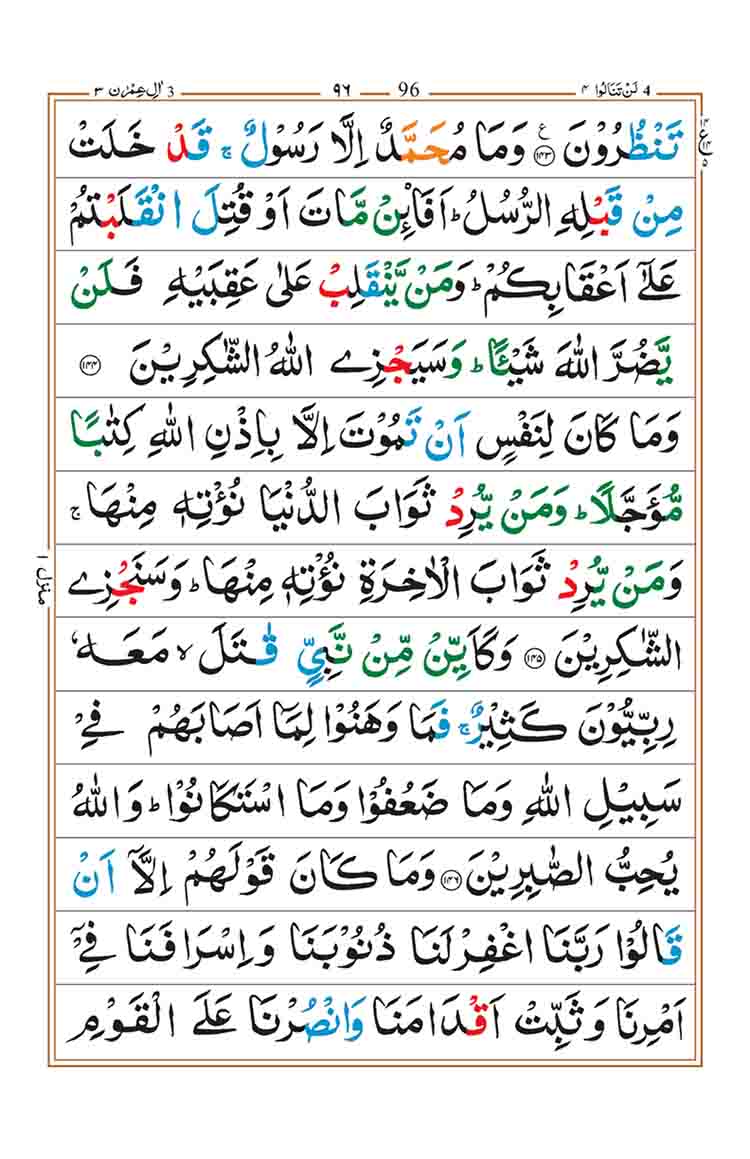 4 لَنْ تَنَالُوا ۴ 96 ۹۶ 3 اٰلِ عِمْرٰن ۳
تَنْظُرُوْنَ ﴿۱۴۳﴾ ع وَمَا مُحَمَّدٌ اِلَّا رَسُوْلٌ ۚ قَدْ خَلَتْ
مِنْ قَبْلِهِ الرُّسُلُ ؕ اَفَا۟ئِنْ مَّاتَ اَوْ قُتِلَ انْقَلَبْتُمْ
عَلٰٓى اَعْقَابِكُمْ ؕ وَمَنْ يَّنْقَلِبْ عَلٰى عَقِبَيْهِ فَلَنْ
يَّضُرَّ اللّٰهَ شَيْـًٔا ؕ وَسَيَجْزِى اللّٰهُ الشّٰكِرِيْنَ ﴿۱۴۴﴾
وَمَا كَانَ لِنَفْسٍ اَنْ تَمُوْتَ اِلَّا بِاِذْنِ اللّٰهِ كِتٰبًا
مُّؤَجَّلًا ؕ وَمَنْ يُّرِدْ ثَوَابَ الدُّنْيَا نُؤْتِهٖ مِنْهَا ۚ
وَمَنْ يُّرِدْ ثَوَابَ الْاٰخِرَةِ نُؤْتِهٖ مِنْهَا ؕ وَسَنَجْزِى
الشّٰكِرِيْنَ ﴿۱۴۵﴾ وَكَاَيِّنْ مِّنْ نَّبِيٍّ قٰتَلَ ۙ مَعَهٗ
رِبِّيُّوْنَ كَثِيْرٌ ۚ فَمَا وَهَنُوْا لِمَاۤ اَصَابَهُمْ فِيْ
سَبِيْلِ اللّٰهِ وَمَا ضَعُفُوْا وَمَا اسْتَكَانُوْا ؕ وَاللّٰهُ
يُحِبُّ الصّٰبِرِيْنَ ﴿۱۴۶﴾ وَمَا كَانَ قَوْلَهُمْ اِلَّاۤ اَنْ
قَالُوْا رَبَّنَا اغْفِرْ لَنَا ذُنُوْبَنَا وَاِسْرَافَنَا فِيْۤ
اَمْرِنَا وَثَبِّتْ اَقْدَامَنَا وَانْصُرْنَا عَلَى الْقَوْمِ
منزل ۱